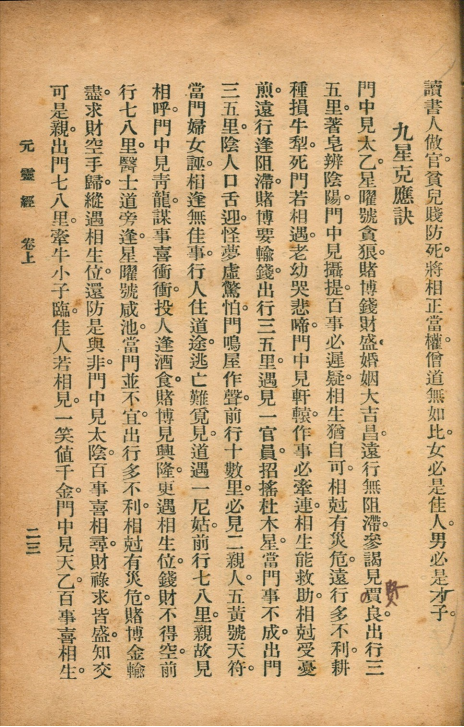 讀書人做官貧兒賤防死將相正當權僧道無如比女必是佳人男必是才子。
九星克應訣
門中見太乙星曜號貪狼賭博錢財盛婚姻大吉昌遠行無阻滯參謁見賈良出行三
五里著皂辨陰陽門中見攝提百事必遲疑相生猶自可相尅有災危遠行多不利耕
種損牛犁死門若相遇老幼哭悲啼門中見軒轅作事必牽連相生能救助相尅受憂
煎遠行逢阻滯賭博要輸錢出行三五里遇見一官員招搖杜木星當門事不成出門
三五里陰人口舌迎怪夢虛驚怕門鳴屋作聲前行十數里必見二親人五黃號天符
當門婦女謳相逢無佳事行人住道途逃亡難覓見道遇一尼姑前行七八里親故見
相呼門中見青龍謀事喜衝衝投人逢酒食賭博見興隆更遇相生位錢財不得空前
行七八里醫士道旁逢星曜號咸池當門並不宜出行多不利相尅有災危賭博金輸
盡求財空手歸縱遇相生位還防是與非門中見太陰百事喜相尋財祿求皆盛知交
可是親出門七八里牽牛小子臨佳人若相見一笑值千金門中見天乙百事喜相生
賢
元靈經 卷上
二三